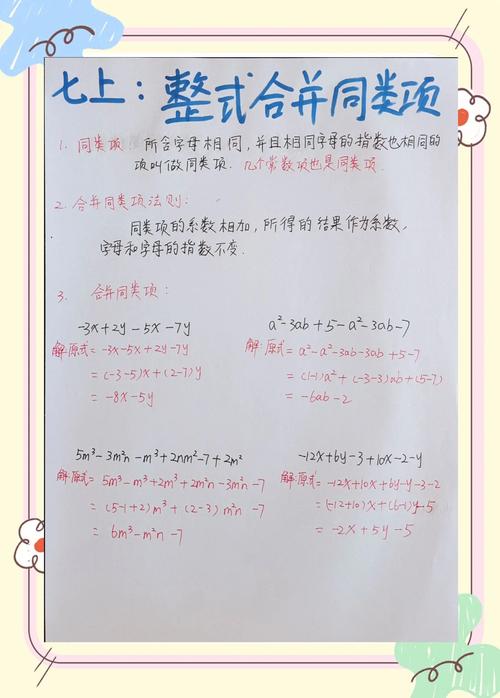 七上：整式合并同类项
1. 同类项：所含字母相同，并且相同字母的指数也相同的
项叫做同类项. 几个常数项也是同类项.
2. 合并同类项法则：
同类项的系数相加，所得的结果作为系数，
字母和字母的指数不变.
3. 合并同类项：
-3x+2y-5x-7y
解：原式=-3x-5x+2y-7y
=(-3-5)x+(2-7)y
=-8x-5y
a²-3ab+5-a²-3ab-7
解：原式=a²-a²-3ab-3ab+5-7
=(1-1)a²+(-3-3)ab+(5-7)
=-6ab-2
5m³-3m²n-m³+2nm²-7+2m³
解：原式=5m³-m³+2m³+2m²n-3m²n-7
=(5-1+2)m³+(2-3)m²n-7
=6m³-m²n-7
-12x+6y-3+10x-2-y
解：原式=-12x+10x+6y-y-3-2
=(-12+10)x+(6-1)y-5
=-2x+5y-5